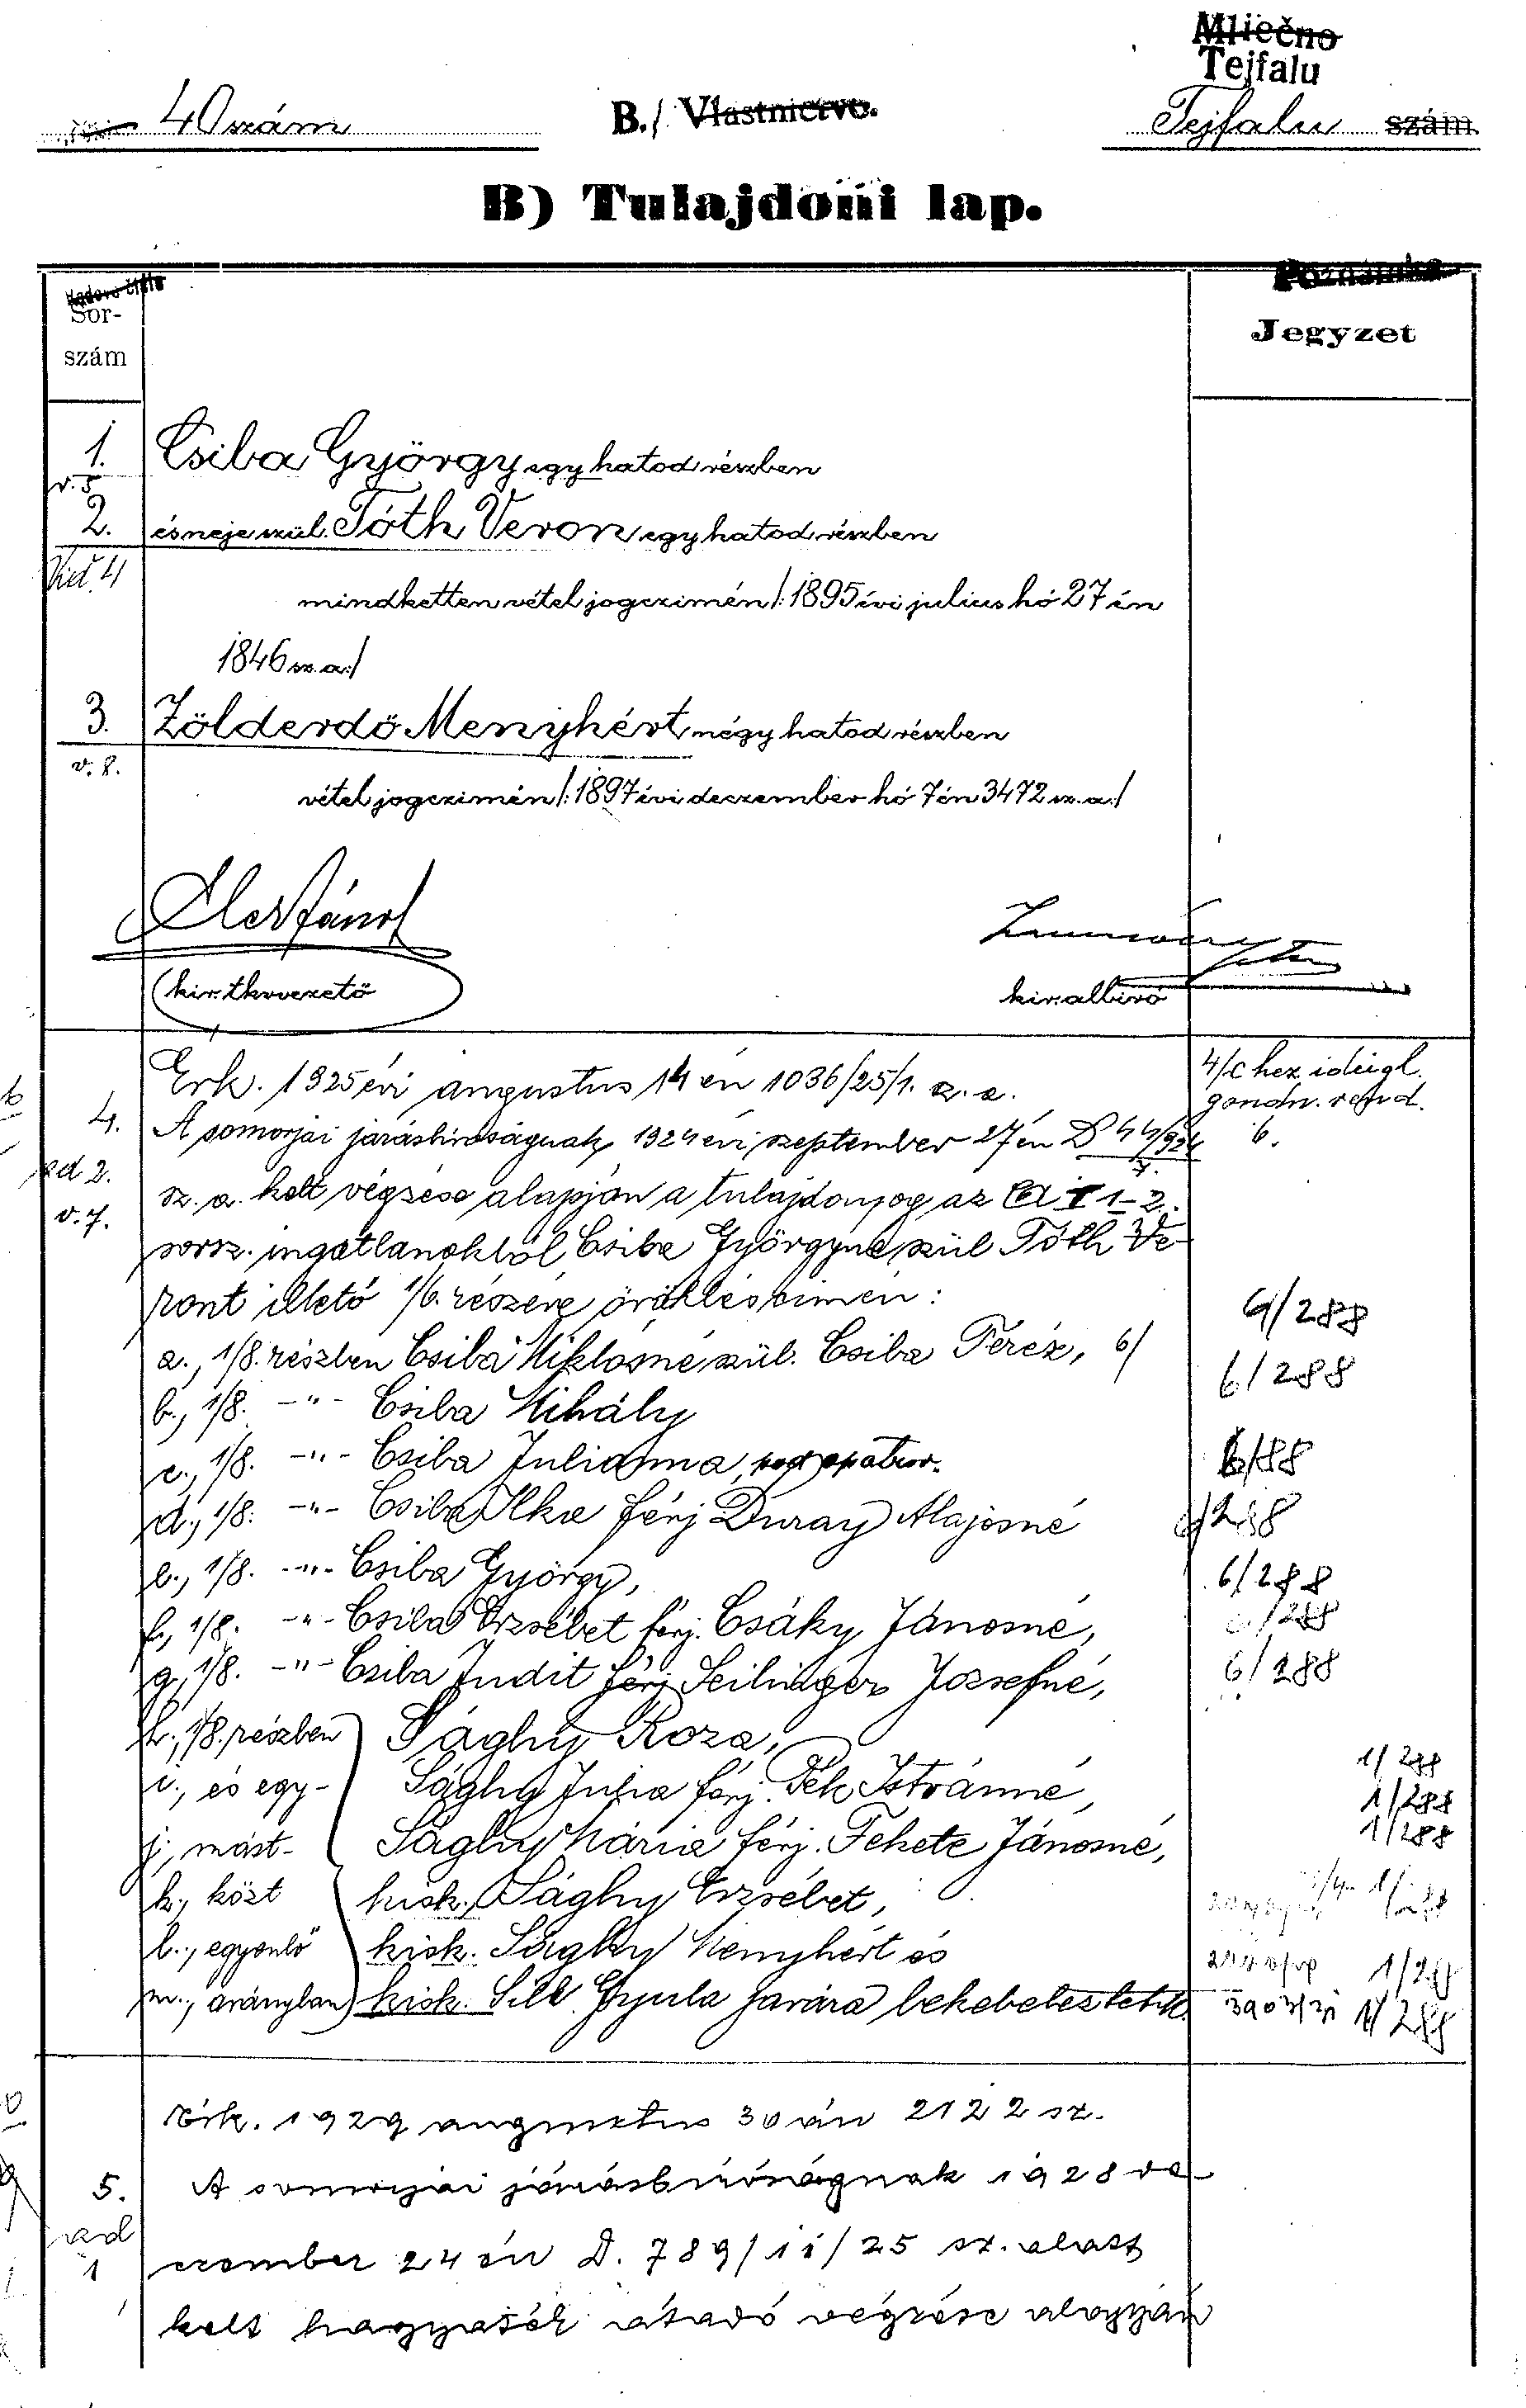 Mliečno
Tejfalu
40 szám
B./ Vlastnictvo.
Tejfalu szám
B) Tulajdoni lap.
Sor-
szám
Poznámka
Jegyzet
1. Csiba György egy hatod részben
v. 5
2. és neje szül. Tóth Veron egy hatod részben
Vid. 4
mindketten vétel jogczimén /: 1895 évi julius hó 27 én
1846 sz. a. :/
3. Zölderdő Menyhért négy hatod részben
v. 8.
vétel jogczimén /: 1897 évi deczember hó 7 én 3472 sz. a. :/
kir. tkvvezető
kir. albiró
Érk. 1925 évi augustus 14 én 1036/25/1. sz. a.
4/c hez ideigl.
gondn. rend.
6.
4. A somorjai járásbiróságnak 1924 évi szeptember 27 én D 44/924
7.
ad 2. sz. a. kelt végzése alapján a tulajdonjog az A I 1-2.
v. 7.
sorsz. ingatlanokból Csiba Györgyné szül Tóth Ve-
ront illető 1/6. részére öröklés cimén:
6/288
a., 1/8. részben Csiba Miklósné szül. Csiba Teréz, 6/
6/288
b., 1/8. -"- Csiba Mihály
c., 1/8. -"- Csiba Julianna,
d., 1/8. -"- Csiba Ilka férj. Duray Alajosné
e., 1/8. -"- Csiba György,
6/288
f., 1/8. -"- Csiba Erzsébet férj. Csáky Jánosné,
/288
g., 1/8. -"- Csiba Judit férj. Seilinger Józsefné,
6/288
h., 1/8. részben Sághy Roza,
1/288
i., és egy- Sághy Julia férj. Pék Istvánné,
1/288
j., mást- Sághy Mária férj. Fekete Jánosné,
1/288
k., közt kisk. Sághy Erzsébet,
l., egyenlő kisk. Sághy Menyhért és
1/288
m., arányban kisk. Sill Gyula javára bekebeleztetik.
1/288
Érk. 1929 augusztus 30 án 2122 sz.
5. A somorjai járásbiróságnak 1928 de-
ad
1 czember 24 én D. 789/11/25 sz. alatt
kelt hagyaték átadó végzése alapján